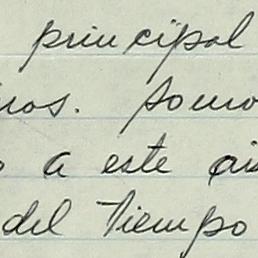 principal
nos. somo
o a este ais
del tiempo